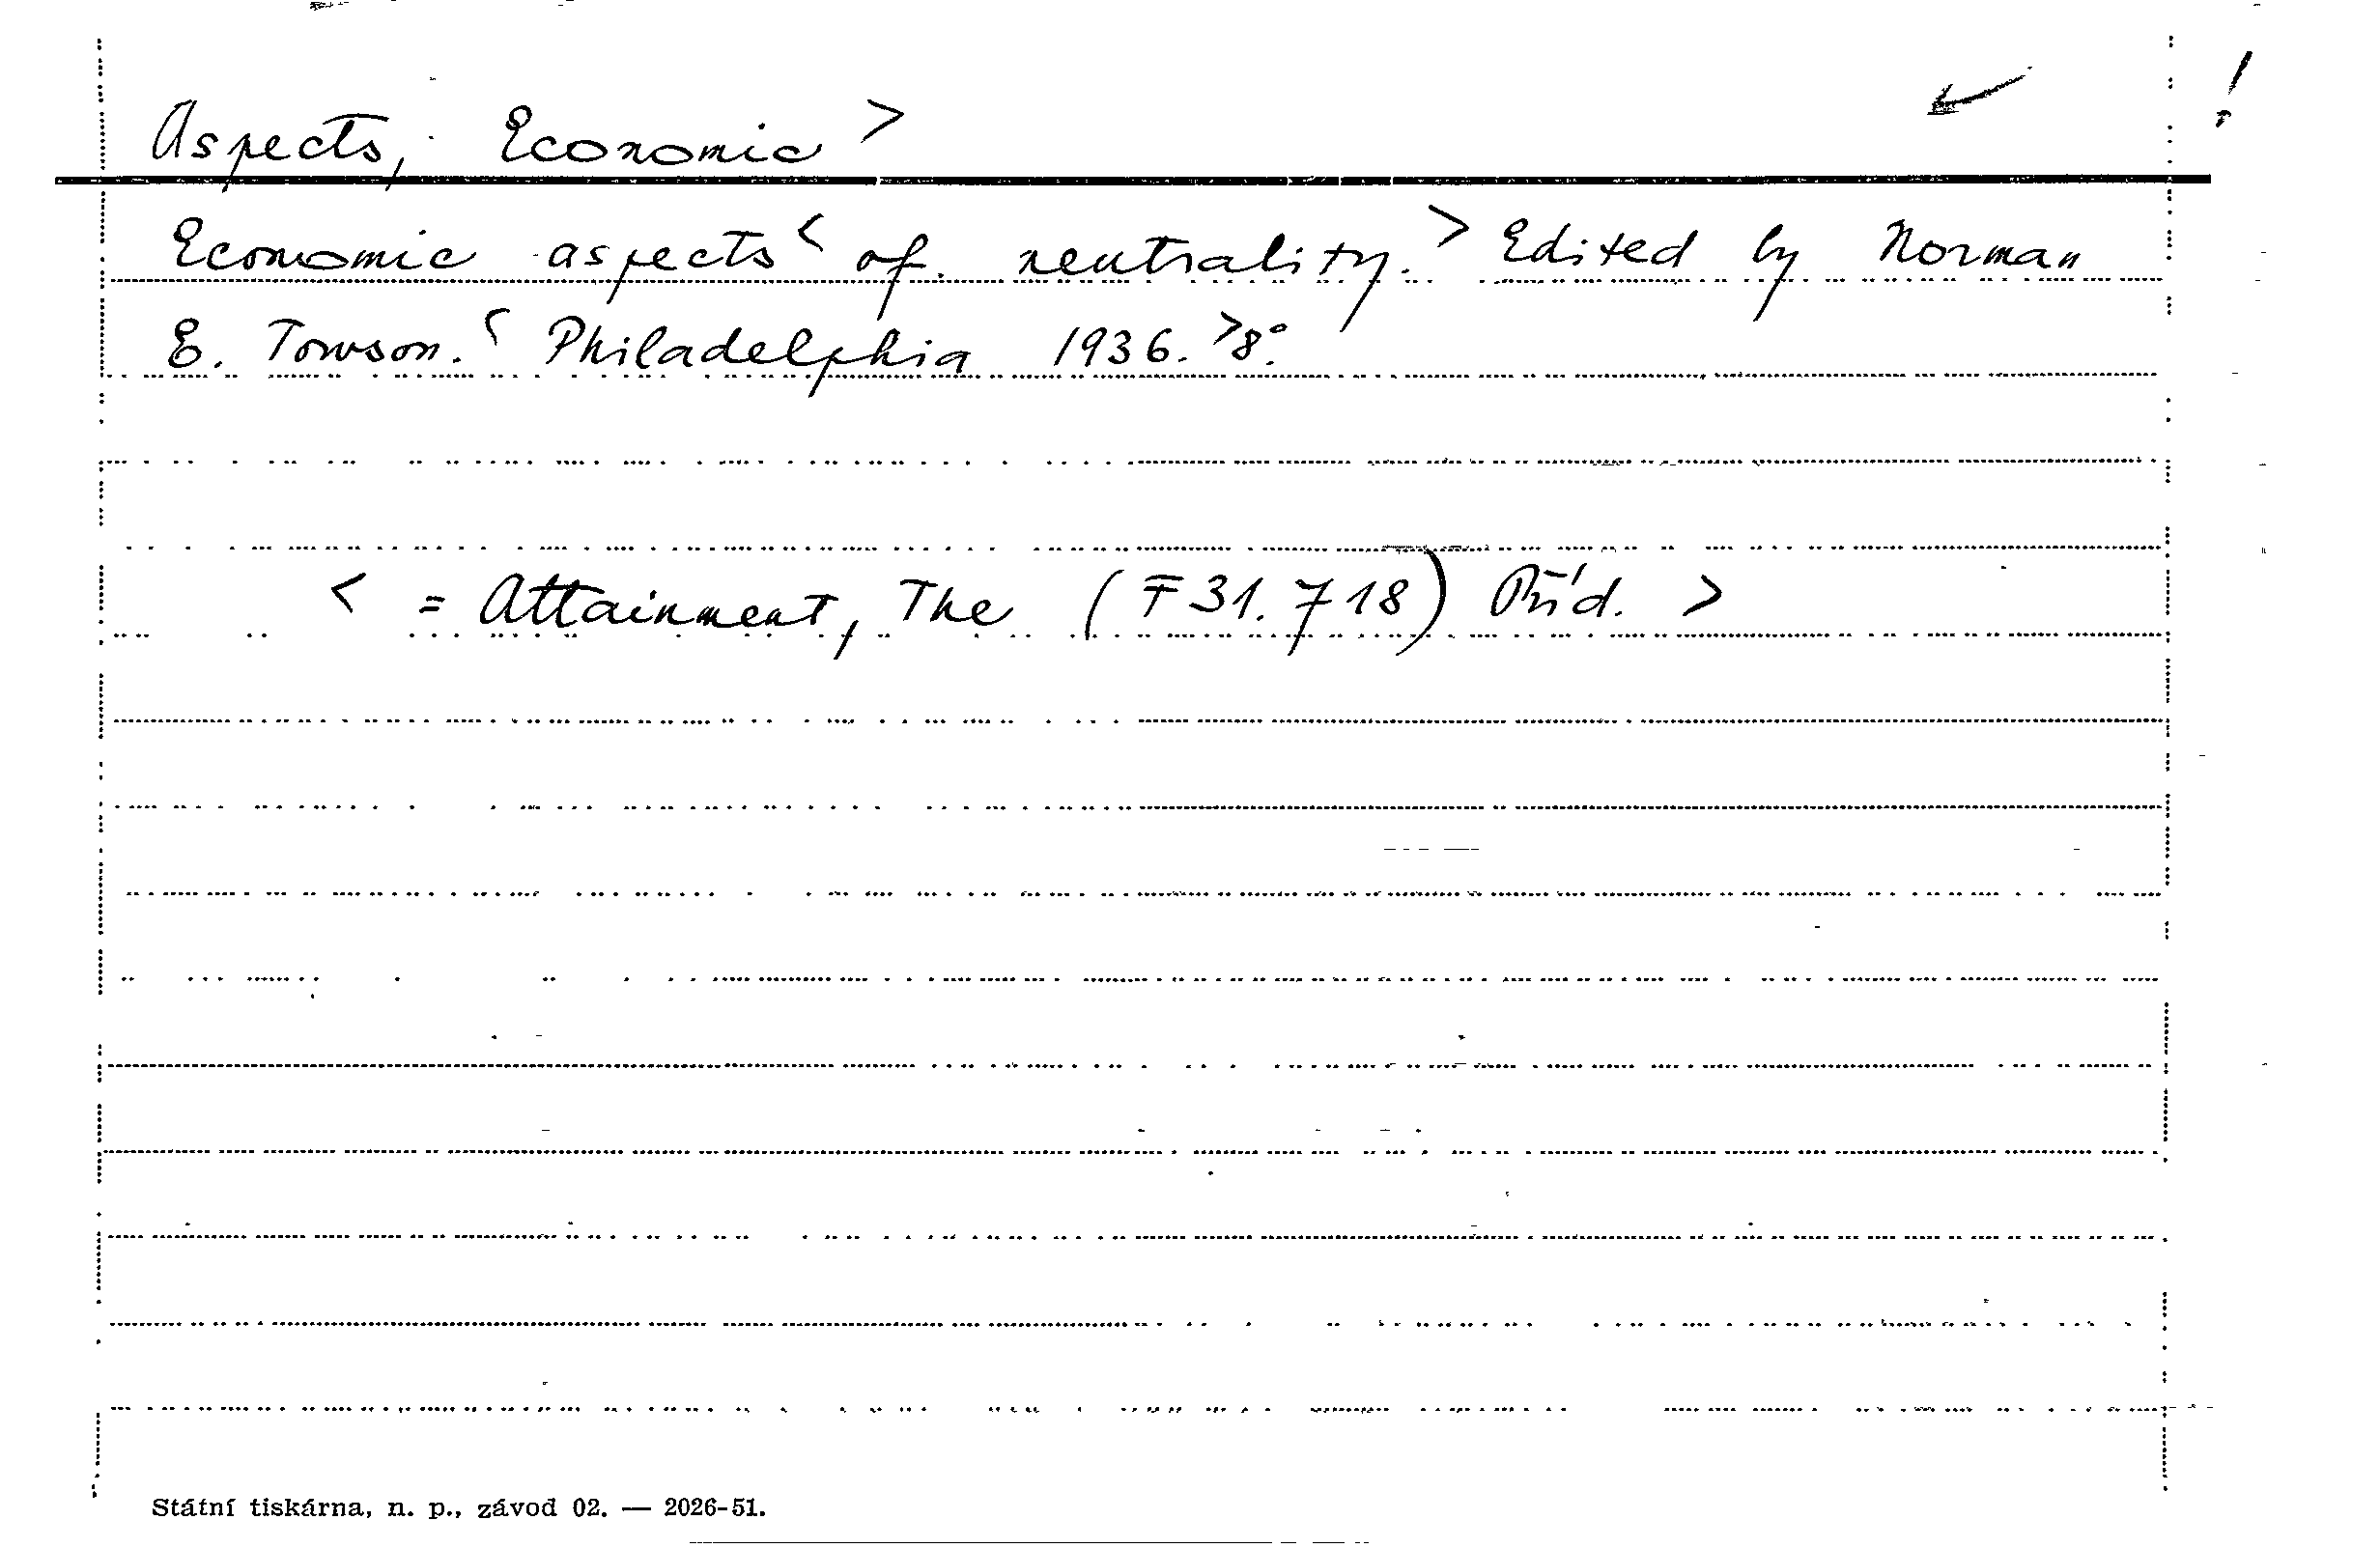 Aspects, Economic > !
Economic aspects < of neutrality. > Edited by Norman
E. Towson. < Philadelphia 1936. > 8°.
< = Attainment, The (F 31.718) Příd. >
Státní tiskárna, n. p., závod 02. — 2026-51.